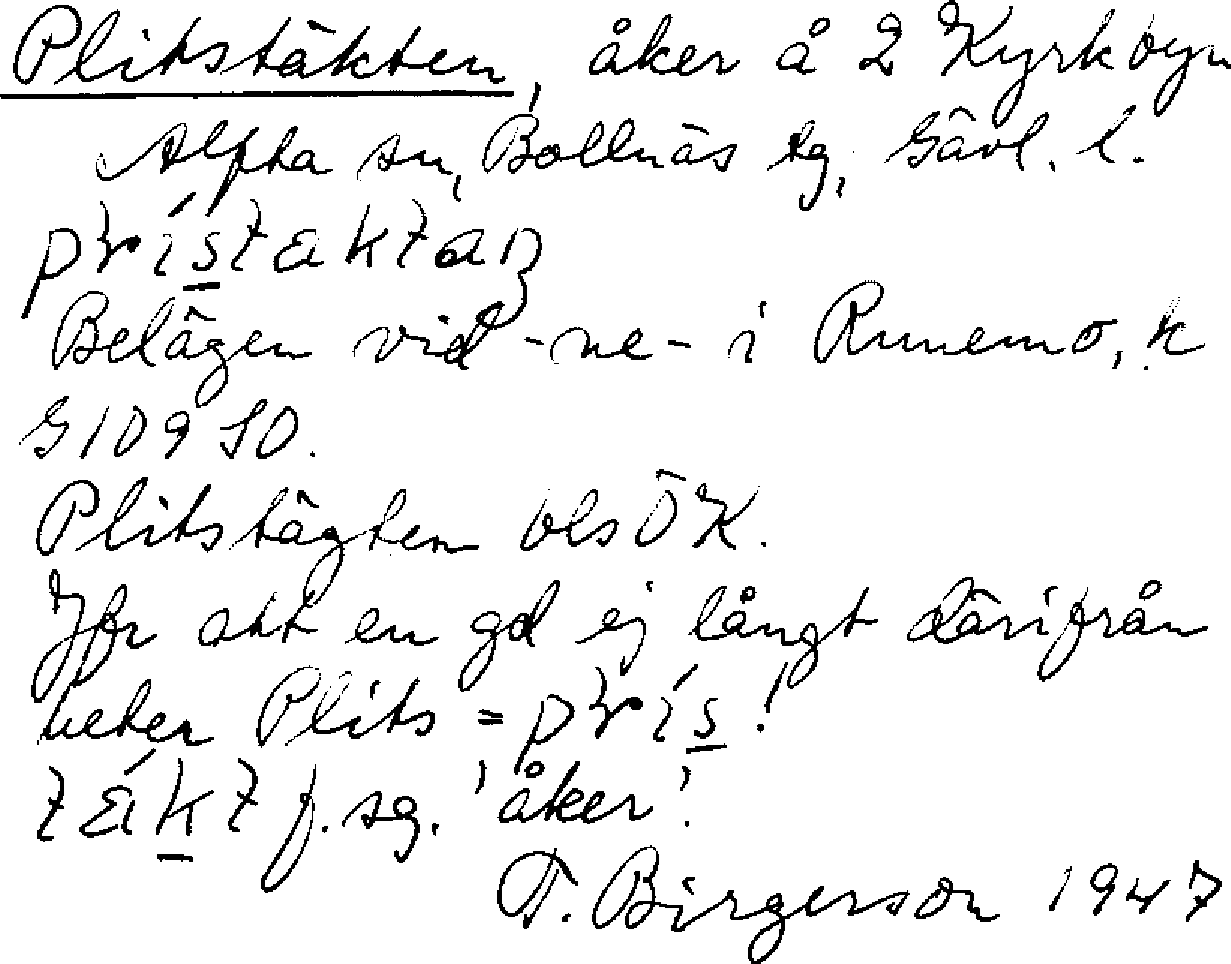 Plitstäkten, åker å 2 Kyrkbyn
Alfta sn, Bollnäs tg, Gävl. l.
prístaktan
Belägen vid -ne- i Runemo, k
G109 SO.
Plitstägten bls ÖK.
Jfr att en gd ej långt därifrån
heter Plits = prís!
täkt f. sg. 'åker'.
T. Birgerson 1947